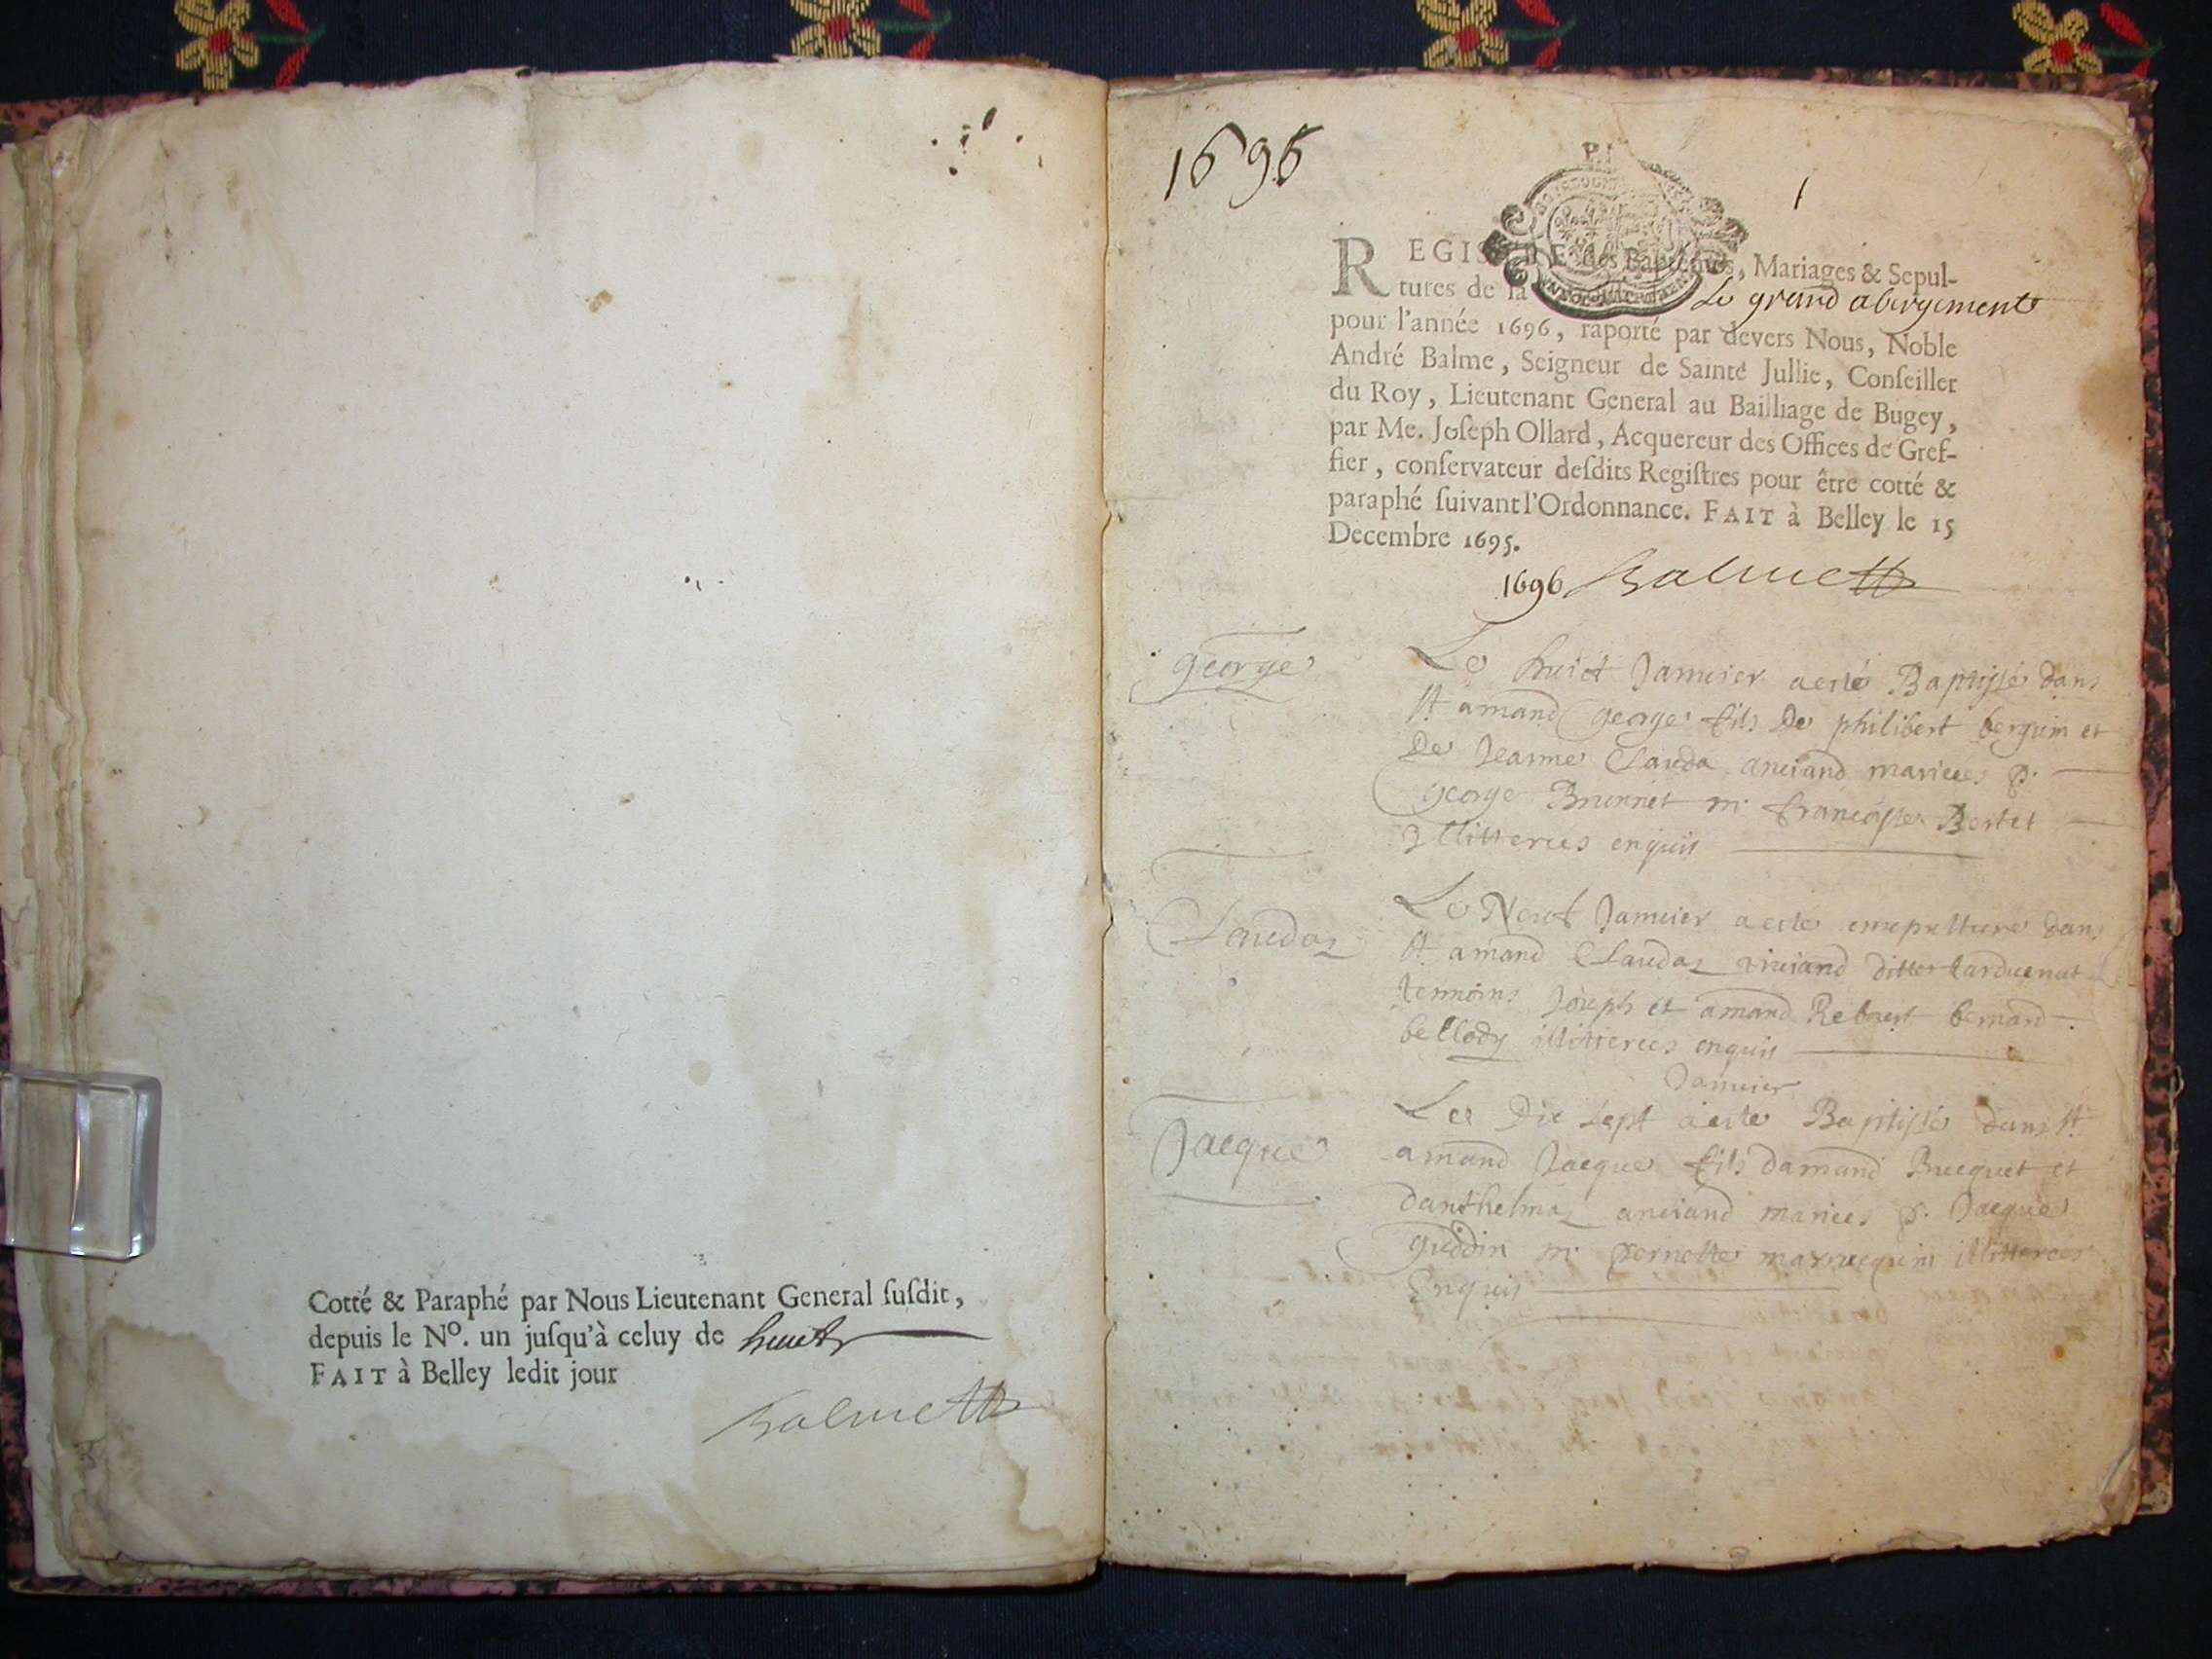 Cotté & Paraphé par Nous Lieutenant General ſuſdit,
depuis le Nº. un juſqu'à celuy de huict
FAIT à Belley ledit jour
1696
1
REGISTRE des Baptêmes, Mariages & Sepul-
tures de la Le grand abergement
pour l'année 1696, raporté par devers Nous, Noble
André Balme, Seigneur de Sainte Jullie, Conſeiller
du Roy, Lieutenant General au Bailliage de Bugey,
par Me. Joſeph Ollard, Acquereur des Offices de Gref-
fier, conſervateur deſdits Regiſtres pour être cotté &
paraphé ſuivant l'Ordonnance. FAIT à Belley le 15
Decembre 1695.
1696
george
Le huict Januier a esté Baptissé dans
St amand george fils De philibert berguin et
De Jeanne Clauda anciand mariees p.
george Brunnet m. francoise Bertet
Illitterees enquis
Clauda
Le Neuf Januier a esté dans
St amand Clauda ditte
temoins Joseph et amand bernard
bellody illitterees enquis
Januier
Jacque
Le Dix sept a esté Baptissé dans St
amand Jacque fils damand Bucquet et
danthelma anciand mariees p. Jacque
guddin m. pernette illitterees
Enquis